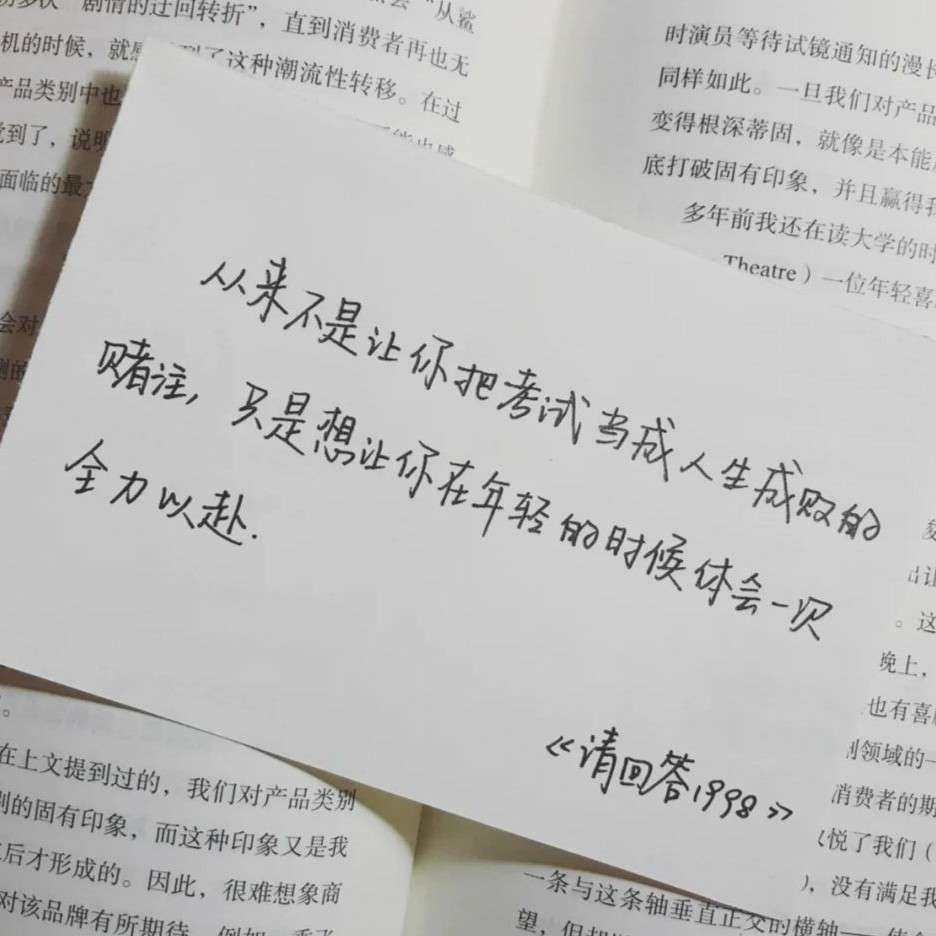 “剧情的迂回转折”，直到消费者再也无
机的时候，就感
到了这种潮流性转移。在过
产品类别中也
到了，说明
面临的最
时演员等待试镜通知的漫长
同样如此。一旦我们对产品
变得根深蒂固，就像是本能
底打破固有印象，并且赢得我
多年前我还在读大学的时
Theatre）一位年轻喜
从来不是让你把考试当成人生成败的
赌注，只是想让你在年轻的时候体会一次
全力以赴.
《请回答1998》
会对
测的
出让
。这
晚上，
也有喜
领域的一
消费者的期
悦了我们（
），没有满足我
在上文提到过的，我们对产品类别
别的固有印象，而这种印象又是我
后才形成的。因此，很难想象商
对该品牌有所期待。例如
一条与这条轴垂直正交的横轴——
望，但却